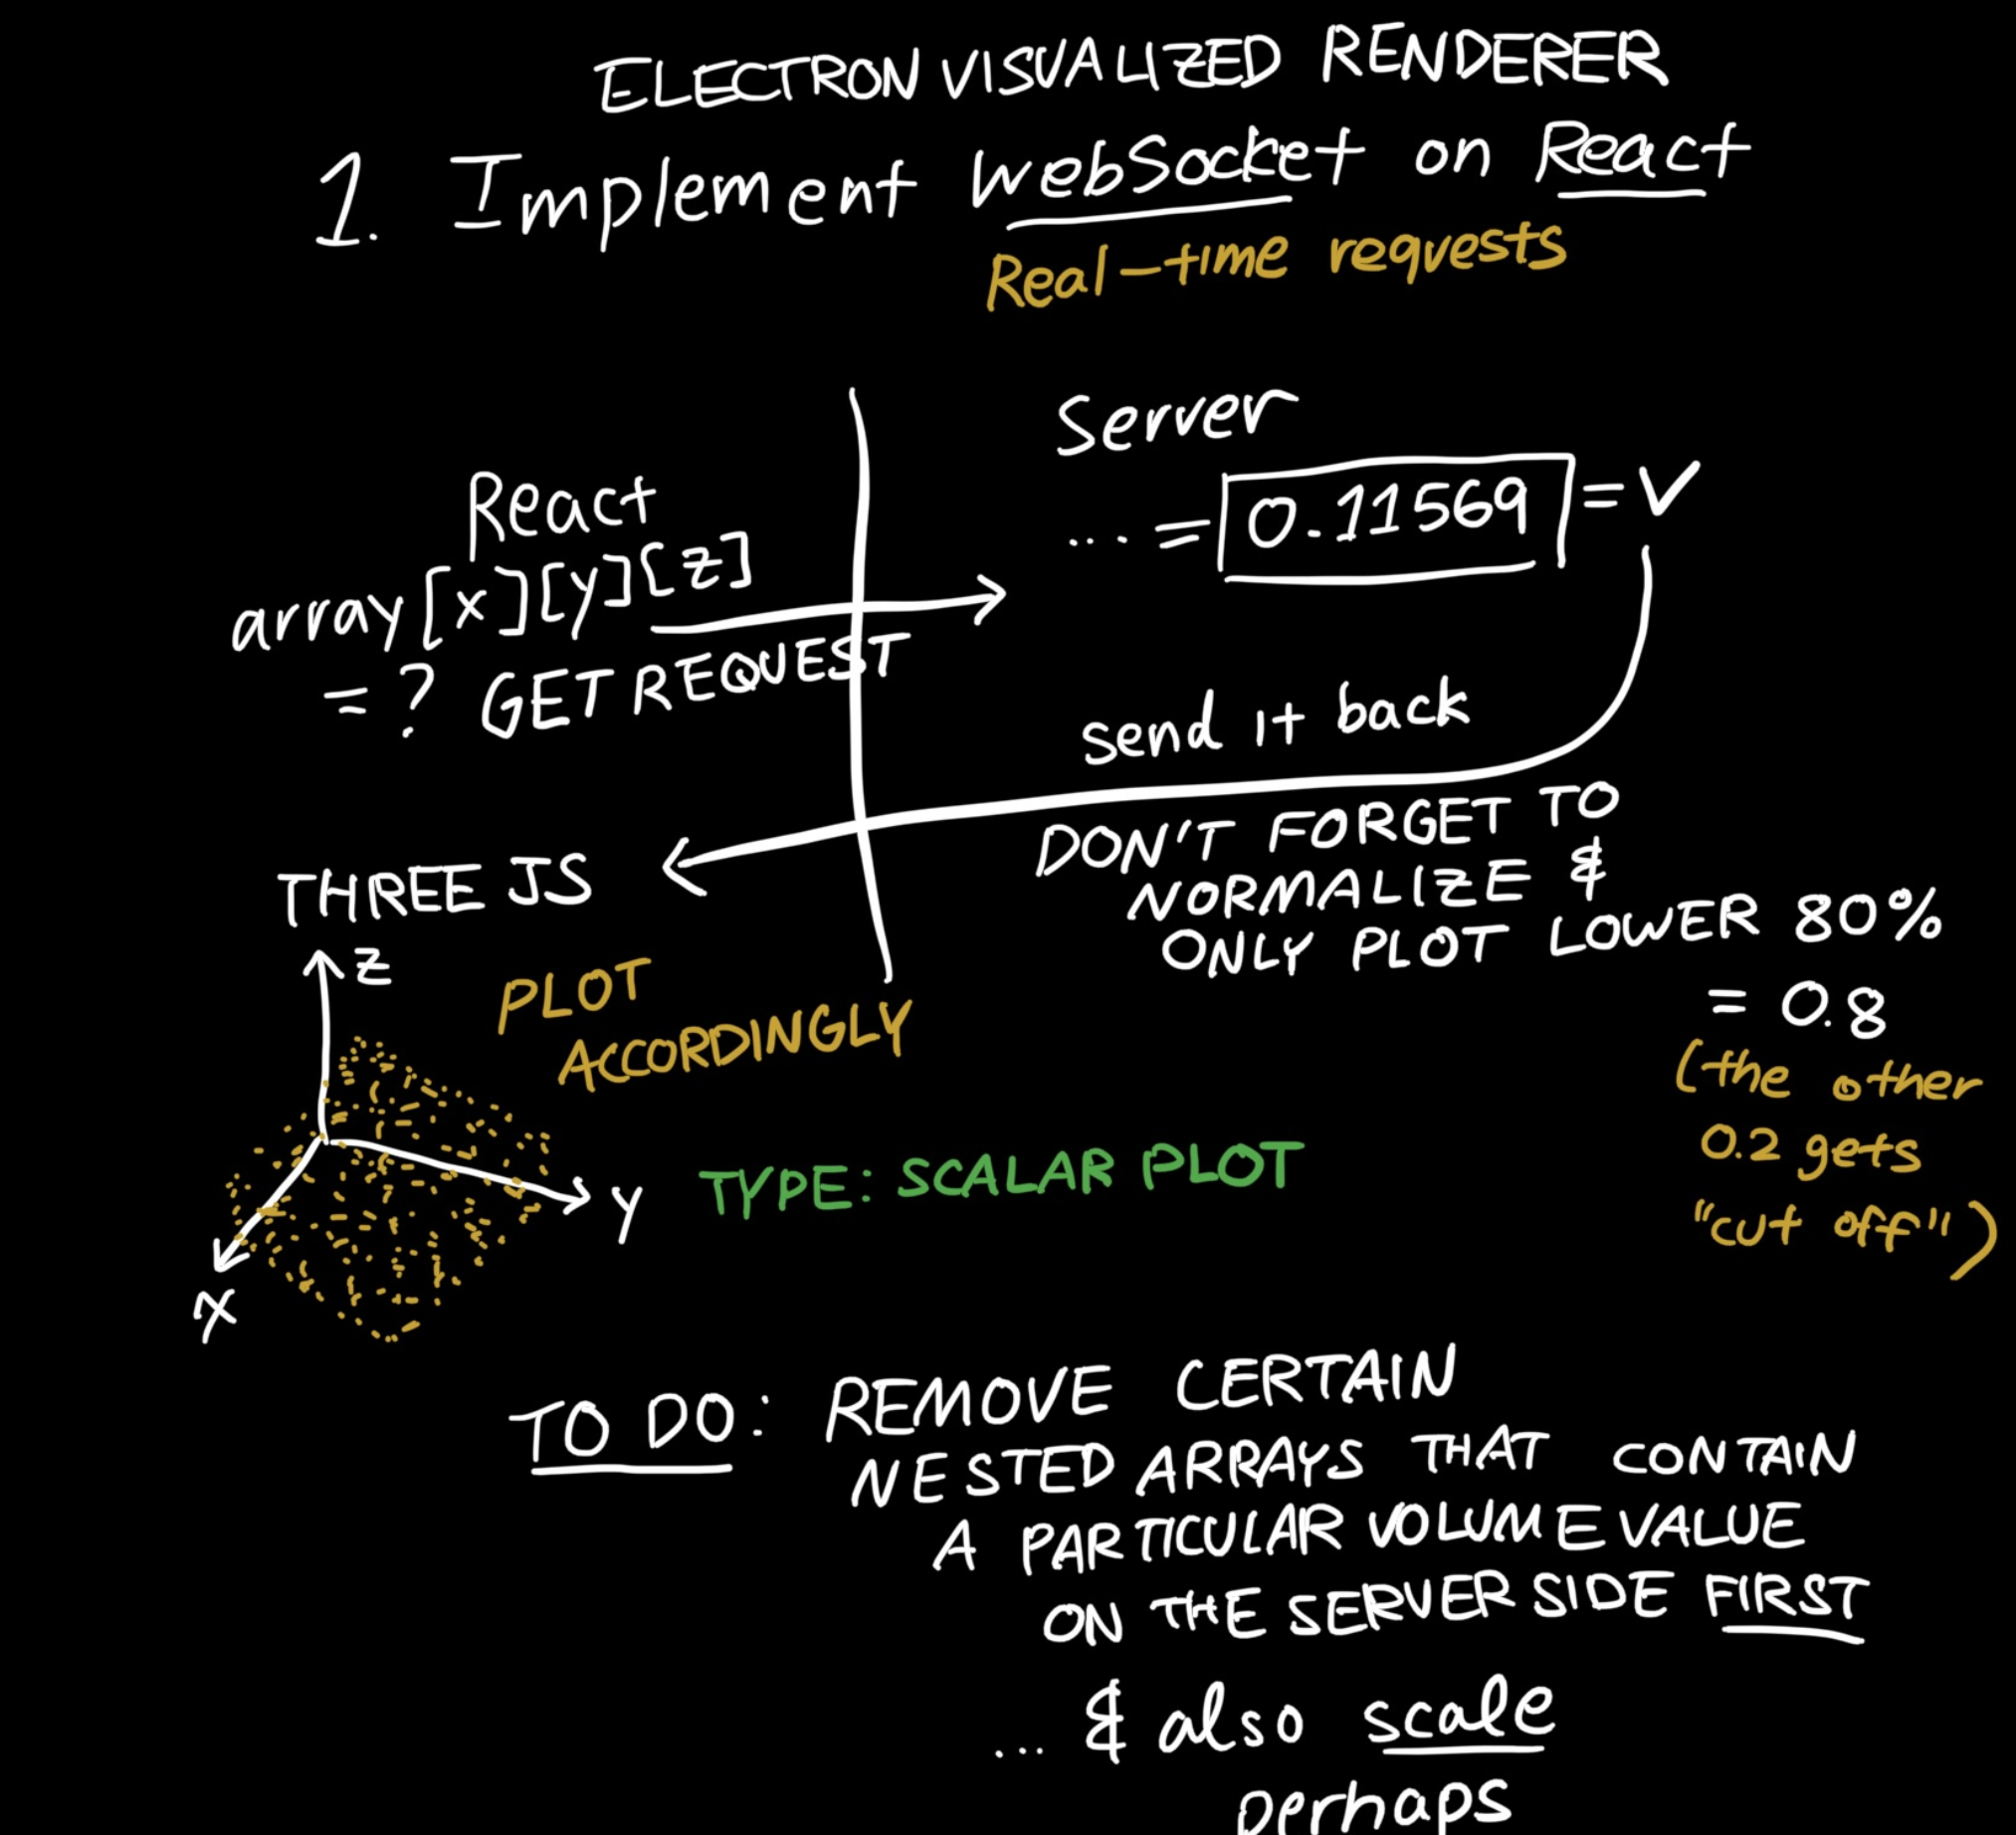 ELECTRON VISUALIZED RENDERER
1. Implement WebSocket on React
Real-time requests
React
array[x][y][z]
= ? GET REQUEST
Server
... = 0.11569 = V
send it back
DON'T FORGET TO
NORMALIZE &
ONLY PLOT LOWER 80%
= 0.8
(the other
0.2 gets
"cut off")
THREE JS
Z
PLOT
ACCORDINGLY
Y
X
TYPE: SCALAR PLOT
TO DO: REMOVE CERTAIN
NESTED ARRAYS THAT CONTAIN
A PARTICULAR VOLUME VALUE
ON THE SERVER SIDE FIRST
... & also scale
perhaps